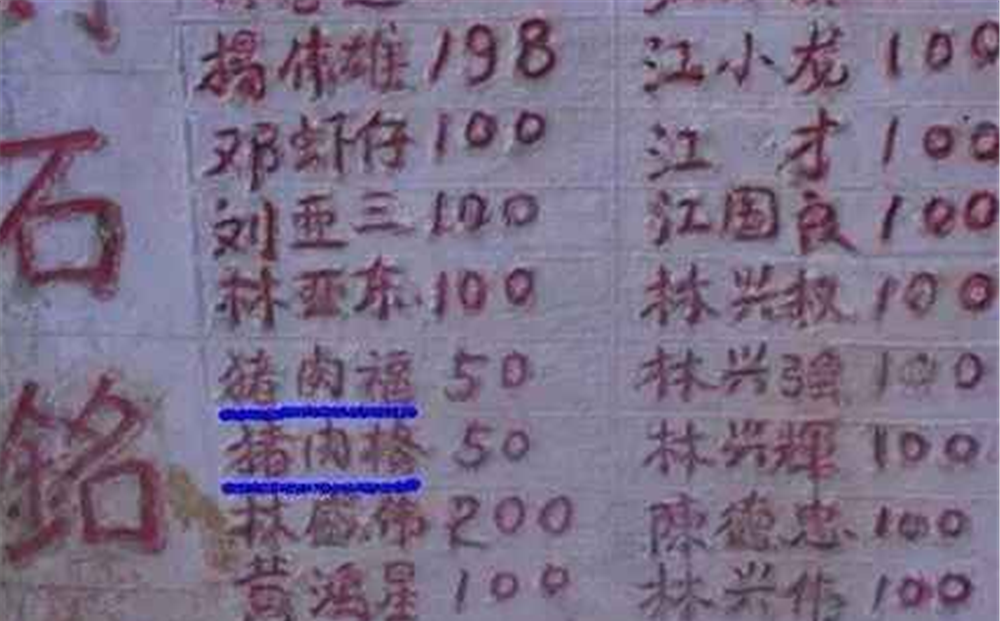 石
銘
揭伟雄 198 江小龙 100
邓虾仔 100 江才 100
刘亚三 100 江国良 100
林亚东 100 林兴权 100
猪肉福 50 林兴强 100
猪肉格 50 林兴輝 100
林盛伟 200 陳德忠 100
黄鴻星 100 林兴伟 100